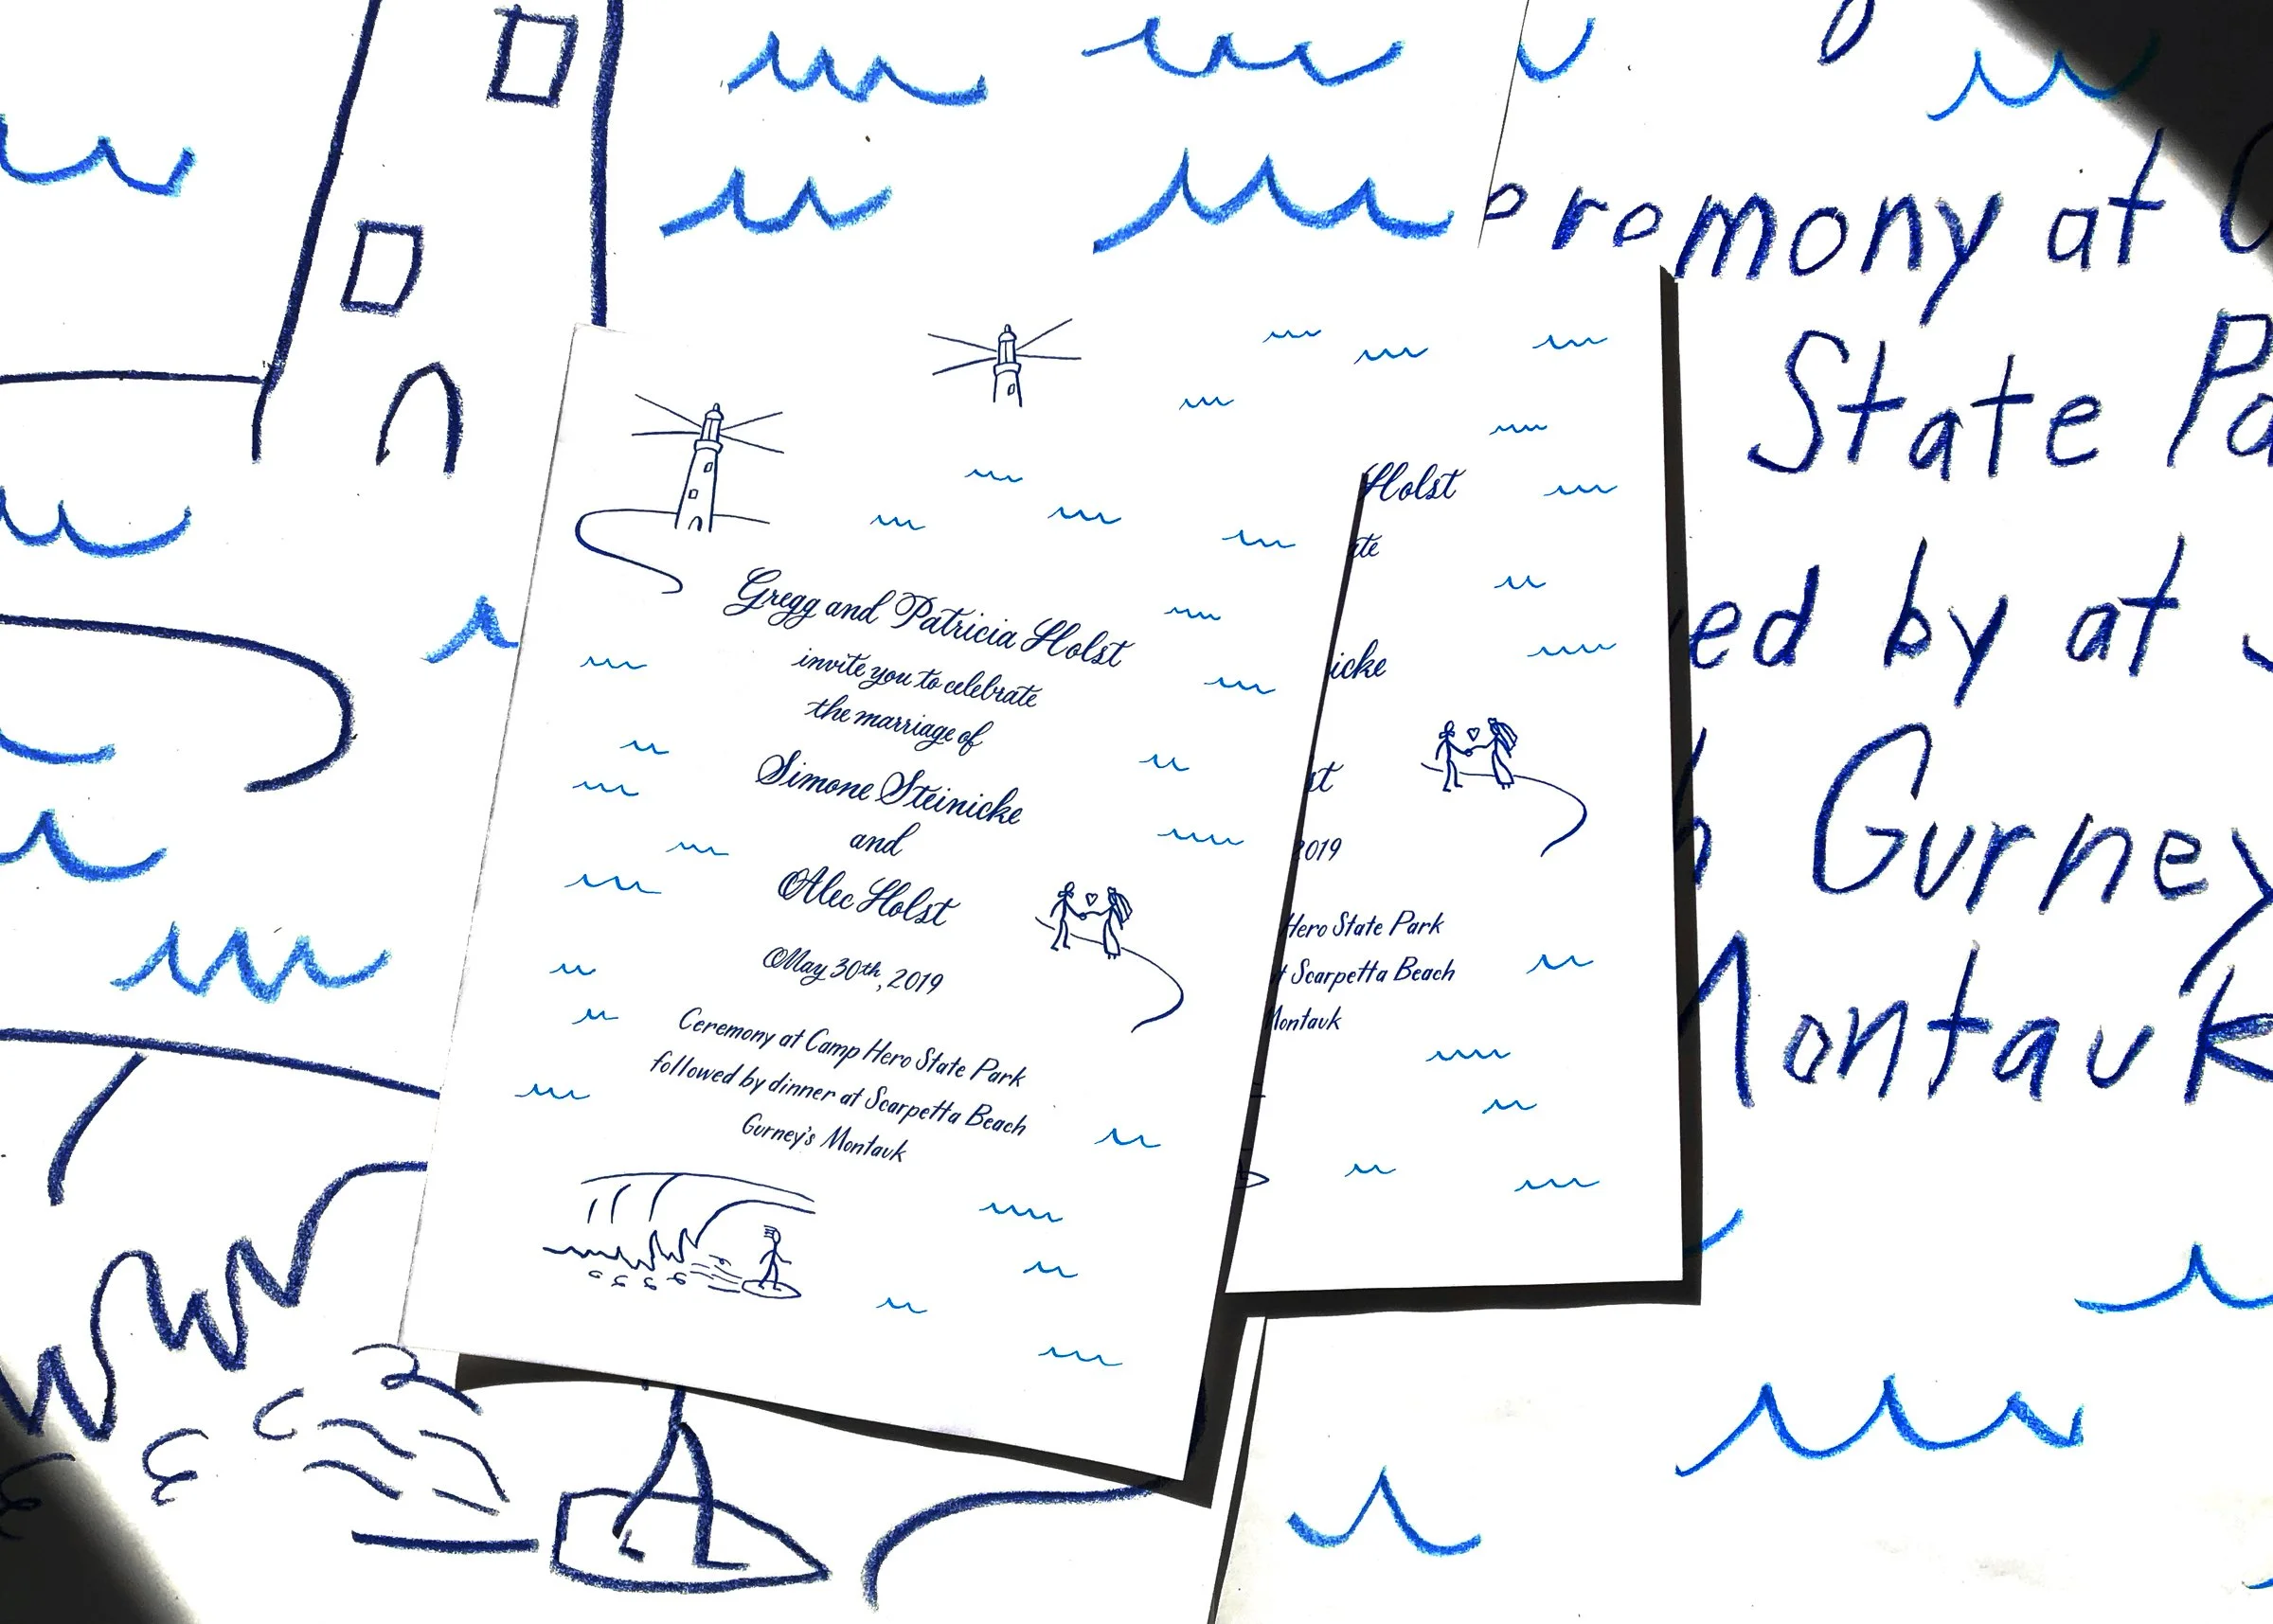 Gregg and Patricia Holst
invite you to celebrate
the marriage of
Simone Steinicke
and
Alec Holst
May 30th, 2019
Ceremony at Camp Hero State Park
followed by dinner at Scarpetta Beach
Gurney's Montauk
Holst
te
icke
st
2019
Hero State Park
t Scarpetta Beach
Montauk
eremony at C
State Pa
ed by at
h Gurney
Montauk